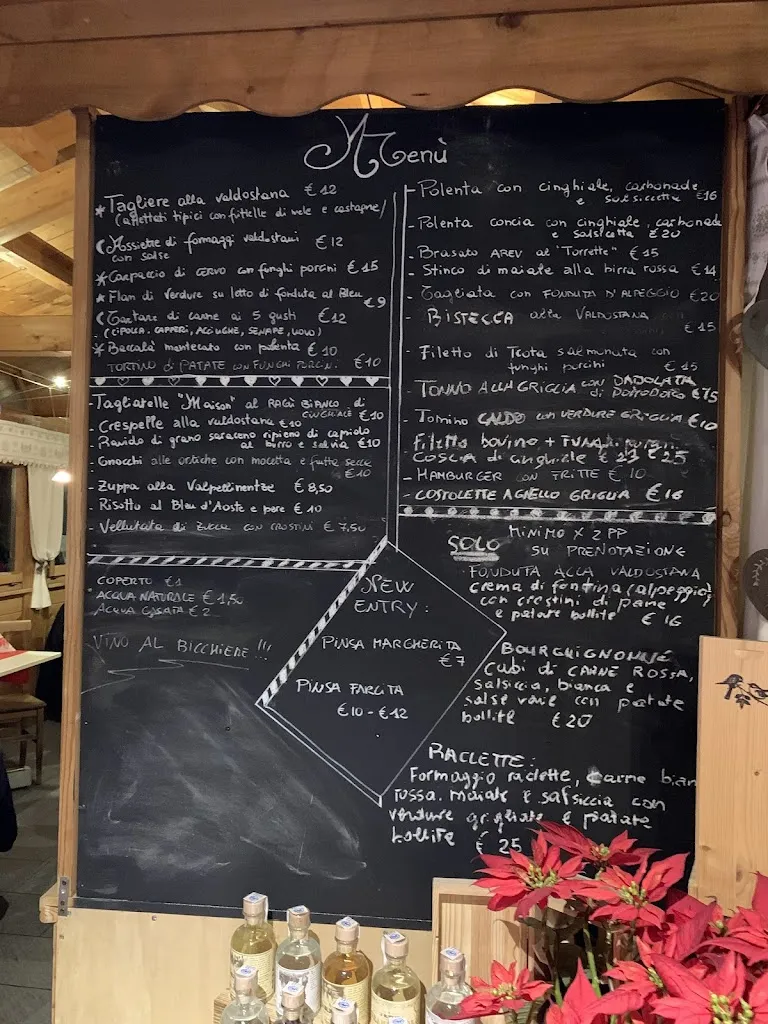 Menù
Tagliere alla valdostana € 12
(affettati tipici con frittelle di mele e castagne)
Assiette di formaggi valdostani € 12
con salse
Carpaccio di CERVO con funghi porcini € 15
Flan di verdure su letto di fonduta al Bleu € 9
Tartare di carne ai 5 gusti € 12
(CIPOLLA, CAPPERI, ACCIUGHE, SENAPE, UOVO)
Baccalà mantecato con polenta € 10
TORTINO di PATATE CON FUNGHI PORCINI € 10
- Tagliatelle "Maison" al RAGÙ BIANCO di
CINGHIALE € 10
- Crespelle alla valdostana € 10
- Raviolo di grano saraceno ripieno di capriolo
al burro e salvia € 10
- Gnocchi alle ortiche con mocetta e frutta secca
€ 10
- Zuppa alla Valpellinentze € 8,50
- Risotto al Bleu d'Aoste e pere € 10
- Vellutata di ZUCCA CON CROSTINI € 7,50
COPERTO € 1
ACQUA NATURALE € 1,50
ACQUA GASATA € 2
VINO AL BICCHIERE !!!
NEW
ENTRY:
PINSA MARGHERITA
€ 7
PINSA FARCITA
€ 10 - € 12
- Polenta con cinghiale, carbonade
e salsiccetta € 16
- Polenta concia con cinghiale, carbonade
e salsiccetta € 20
- Brasato AREV al "Torrette" € 15
- Stinco di maiale alla birra rossa € 14
- Tagliata con FONDUTA D'ALPEGGIO € 20
- BISTECCA alla VALDOSTANA
€ 15
- Filetto di Trota salmonata con
funghi porcini € 15
- TONNO ALLA GRIGLIA con DADOLATA
di POMODORO € 15
- Tomino CALDO con VERDURE GRIGLIA € 10
- Filetto bovino + FUNGHI porcini
€ 25
- COSCIA di cinghiale € 13
- HAMBURGER CON FRITTE € 10
- COSTOLETTE AGNELLO GRIGLIA € 16
SOLO MINIMO X 2 PP
SU PRENOTAZIONE
FONDUTA ALLA VALDOSTANA
crema di fontina (alpeggio)
con crostini di pane
e patate bollite € 16
BOURGUIGNONNE
Cubi di CARNE ROSSA,
salsiccia, bianca e
salse varie con patate
bollite € 20
RACLETTE:
Formaggio raclette, carne bian
rossa. maiale e salsiccia con
verdure grigliate e patate
bollite € 25